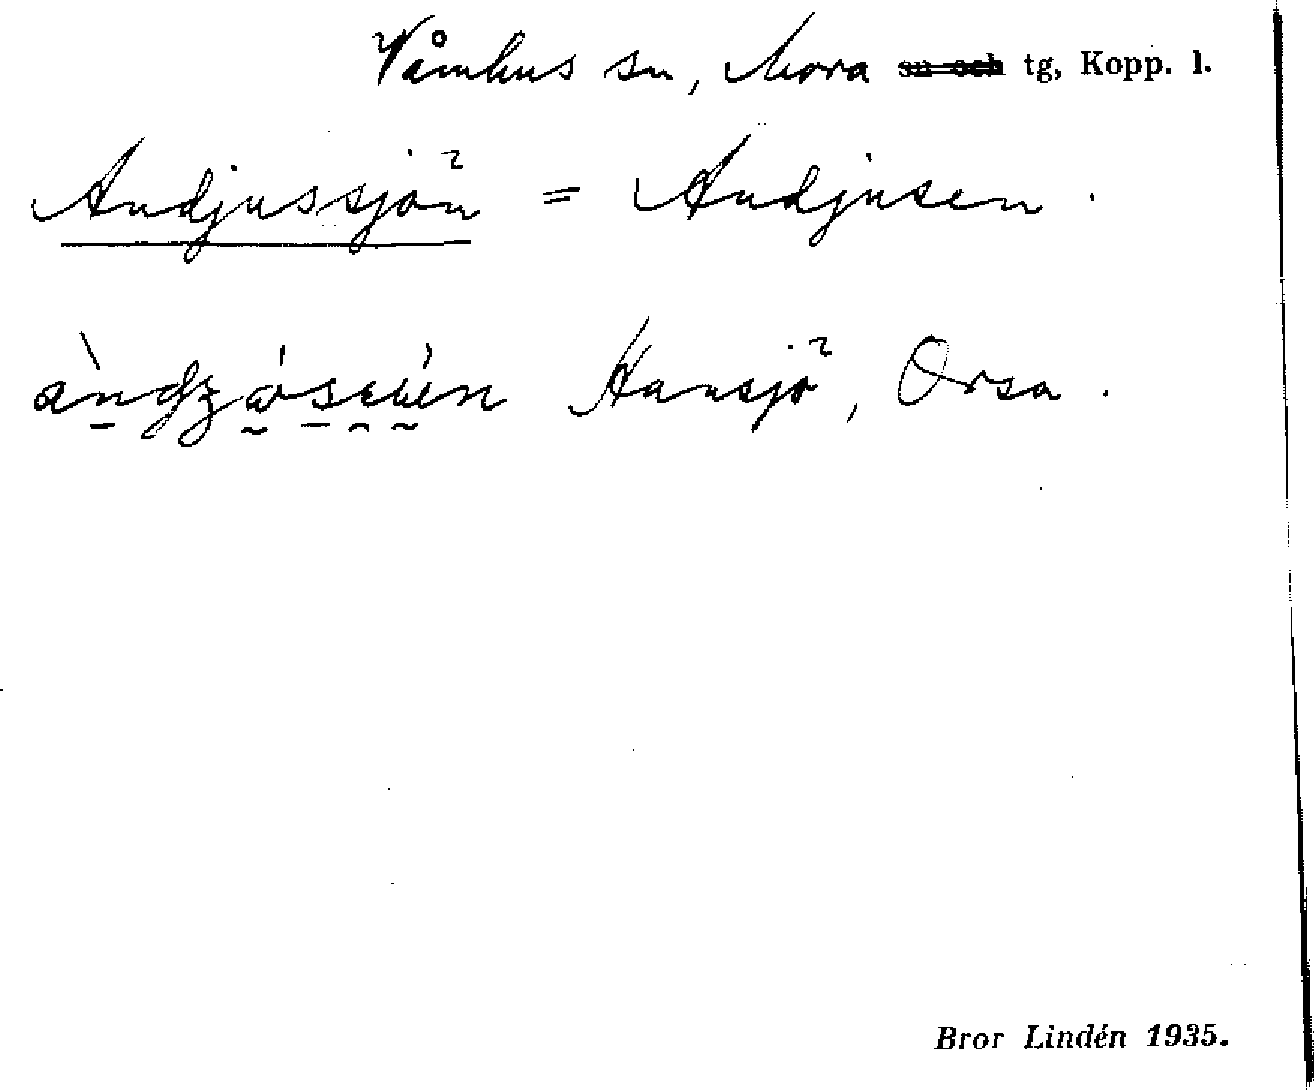 Våmhus sn, Mora sn och tg, Kopp. l.
Andjussjön = Andjusen.
Hansjö, Orsa.
Bror Lindén 1935.